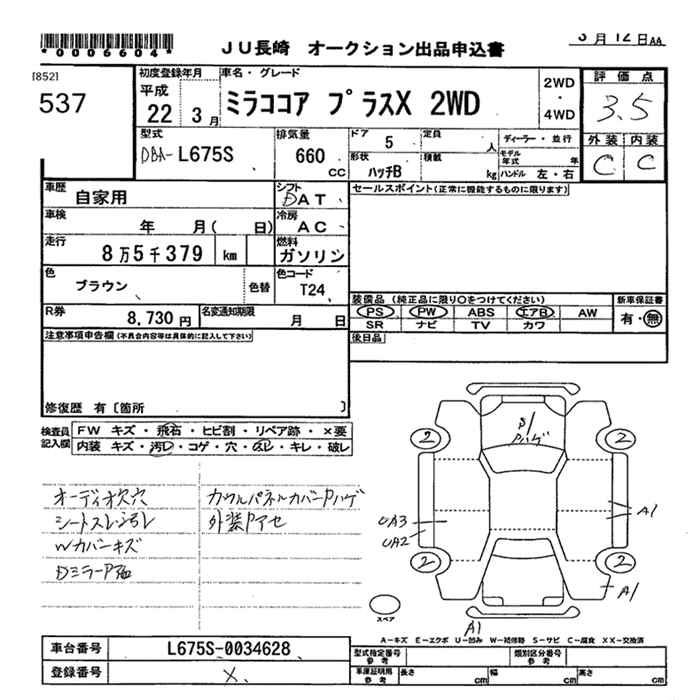 *0006604*
JU長崎 オークション出品申込書
月12日AA
[852]
537
初度登録年月
平成
22 3月
車名・グレード
ミラココア プラスX 2WD
2WD
・
4WD
評価点
3.5
外装 内装
C C
型式
DBA-L675S
排気量
660
CC
ドア 5
定員
人
形状
ハッチB
積載
kg
ディーラー・並行
モデル年式
年
ハンドル 左・右
車歴
自家用
シフト
DAT
セールスポイント(正常に機能するものに限ります)
車検
年 月( 日)
冷房
AC
走行
8万5千379 km
燃料
ガソリン
色
ブラウン
色替
色コード
T24
装備品 (純正品に限り○をつけてください)
PS PW ABS エアB AW
SR ナビ TV カワ
新車保証書
有・無
R券
8,730円
名変通知期限
月 日
後日品
注意事項申告欄(不具合内容等は具体的に記入して下さい)
修復歴 有〔箇所 〕
検査員記入欄
FW キズ・飛石・ヒビ割・リペア跡・×要
内装 キズ・汚レ・コゲ・穴・スレ・キレ・破レ
オーディオ欠穴
シートスレ汚レ
Wカバーキズ
DミラーP
カウルパネルカバーPハゲ
外装Pアセ
Pハゲ
2 2
UA3
UA2
A1
2 2
A1
A1
スペア
A-キズ E-エクボ U-凹み W-補修跡 S-サビ C-腐食 XX-交換済
車台番号
L675S-0034628
登録番号
X
型式指定番号
参考
類別区分番号
参考
車庫証明用
参考
長さ cm
幅 cm
高さ cm